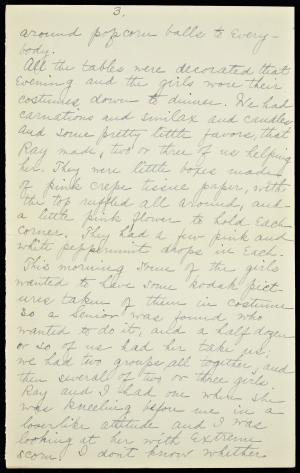 3.
around popcorn balls to every-
body.
All the tables were decorated that
evening and the girls wore their
costumes, down to dinner. We had
carnations and smilax and candles
and some pretty little favors, that
Ray made, two or three of us helping
her. They were little boxes made
of pink crepe tissue paper, with
the top ruffled all around, and
a little pink flower to hold each
corner. They had a few pink and
white peppermint drops in each.
This morning some of the girls
wanted to have some kodak pict-
ures taken of them in costume
so a senior was found who
wanted to do it, and a half dozen
or so, of us had her take us;
we had two groups, all together, and
then several of two or three girls.
Ray and I had one where she
was kneeling before me in a
loverlike attitude and I was
looking at her with extreme
scorn. I don't know whether